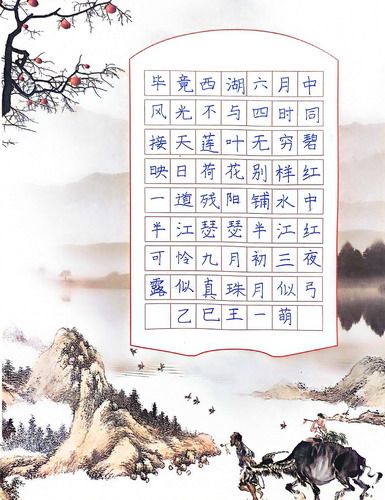 毕竟西湖六月中
风光不与四时同
接天莲叶无穷碧
映日荷花别样红
一道残阳铺水中
半江瑟瑟半江红
可怜九月初三夜
露似真珠月似弓
乙巳王一萌